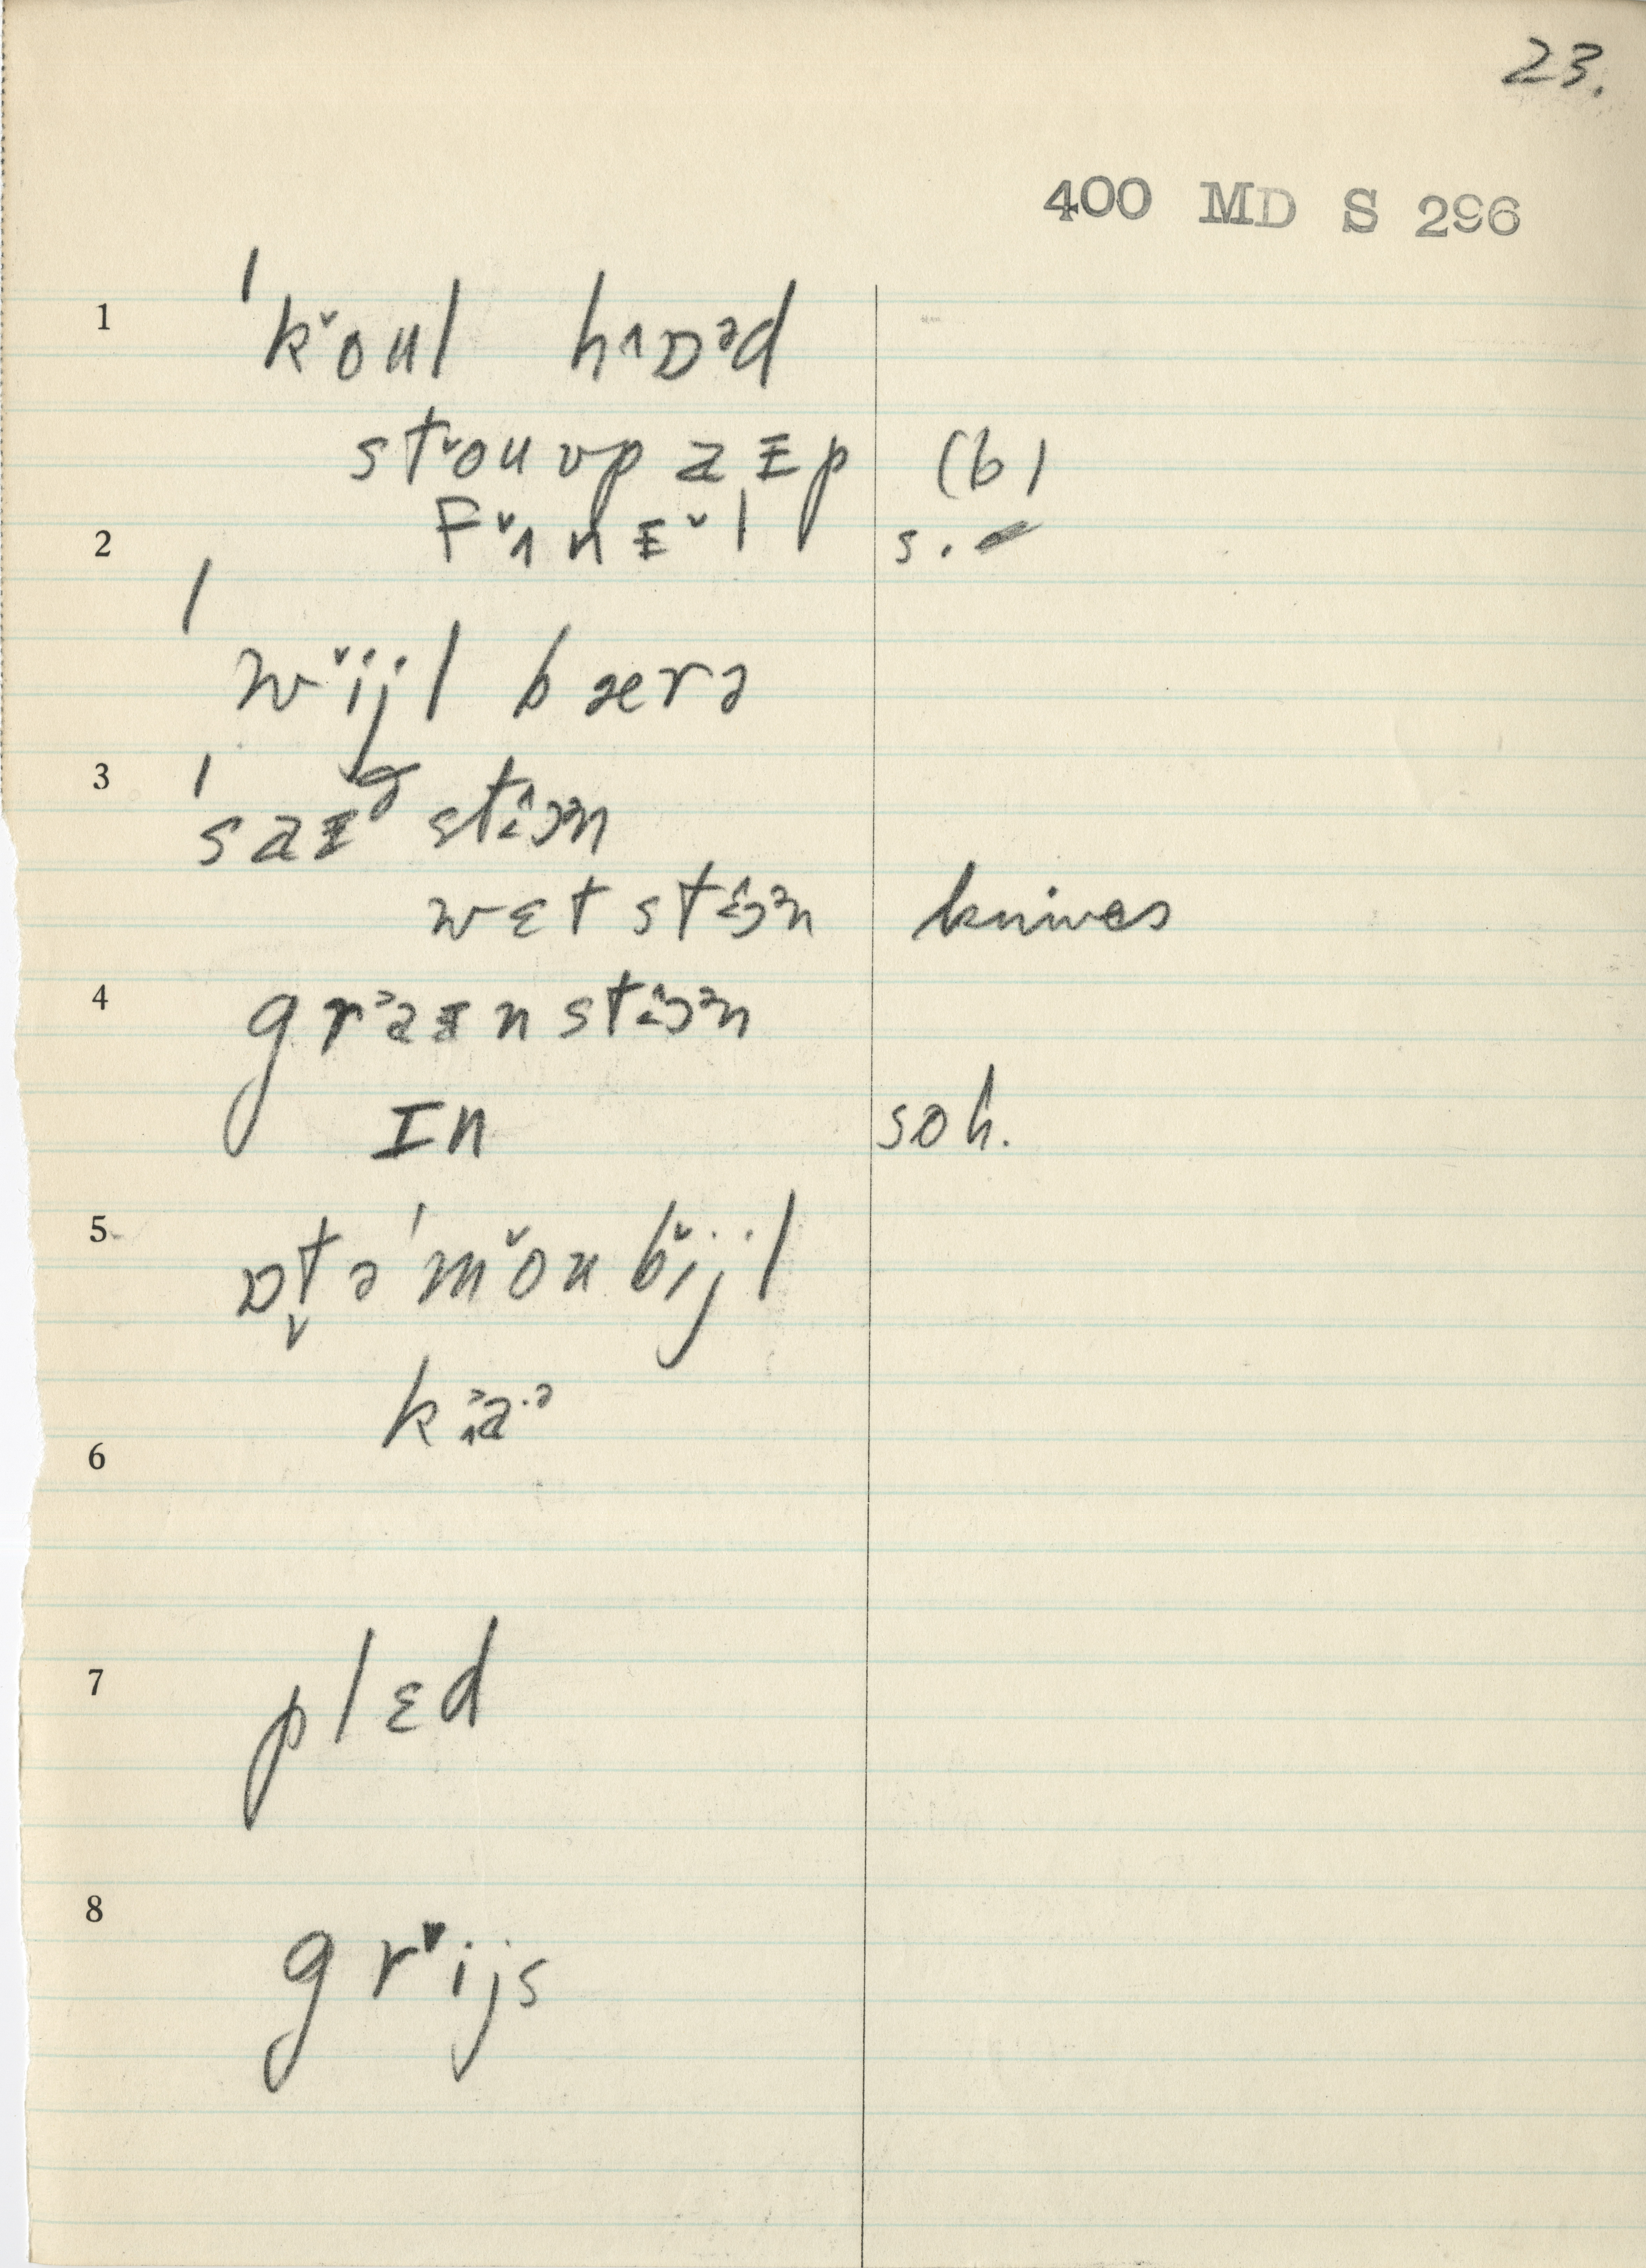 23.
400 MD S 296
1 ˈkˇoul hɒᵊd
stˇoʊvpaɪp (b)
2 fˇʌnɪˇl s. ✓
ˈwˇijl bærə
3 ˈsaɪᵊ stɔᵊn
wɛt stɔᵊn knives
4 graɪn stɔᵊn
ɪn soh.
5 ɒt̬əˈmˇoubˇijl
6 kaˑə
7 plɛd
8 grˇijs